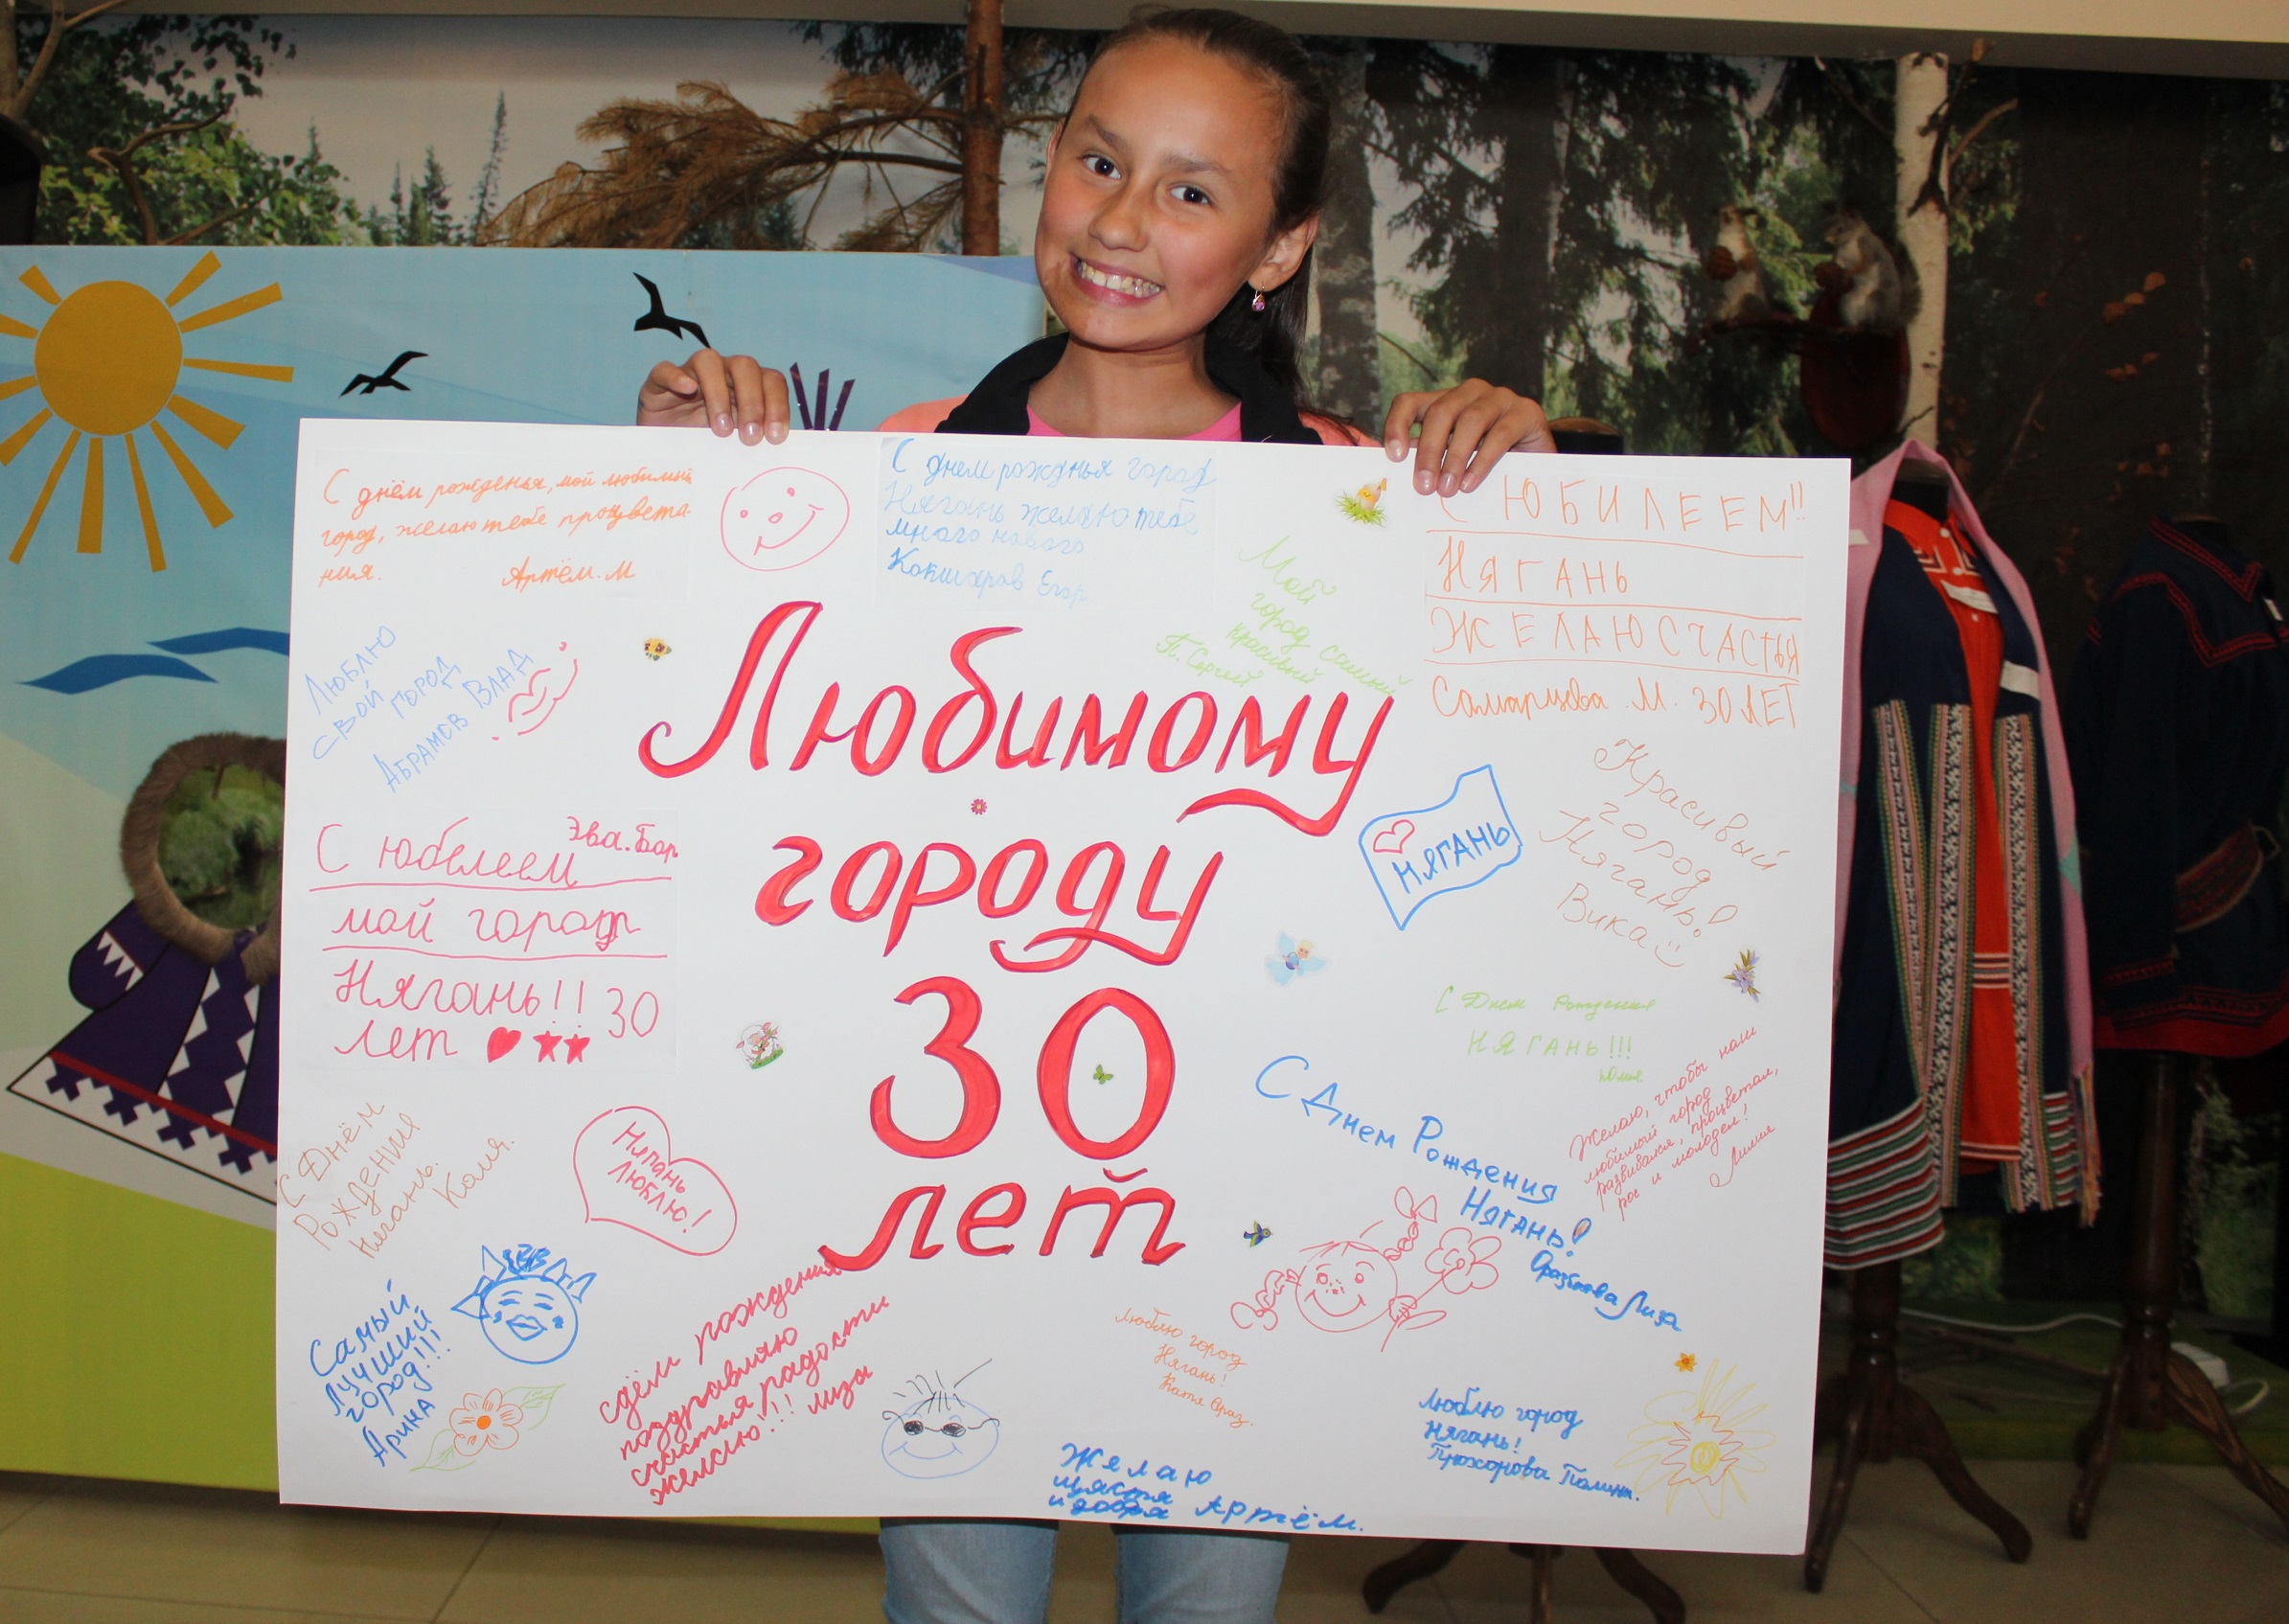 С днём рожденья, мой любимый
город, желаю тебе процвета
ния. Артём. М
С днем рожднья город
Нягань желаю тебе
много нового
Кокшаров Егор
Мой
город самый
красивый
П. Сергей
С ЮБИЛЕЕМ!!
НЯГАНЬ
ЖЕЛАЮ СЧАСТЬЯ
Самарцева. М. 30 ЛЕТ
Люблю
свой город
Абрамов Влад
Любимому
городу
30
лет
С юбелеем Эва. Бор
мой город
Нягань!! 30
лет
НЯГАНЬ
Красивый
город
Нягань!
Вика
С Днем Рождения
НЯГАНЬ!!!
Юлия
Желаю, чтобы наш
любимый город
развивался, процветал,
рос и молодел!
Лилия
С Днем Рождения
Нягань!
Лиза
С Днём
Рождения
Нягань.
Коля.
Нягань
люблю!
Самый
лучший
город!!!
Арина
сднём рождения
поздравляю
счастья радости
желаю!!! лиза
Люблю город
Нягань!
Катя Араз.
Желаю
щястя
и добра Артём.
Люблю город
Нягань!
Прохорова Полина.